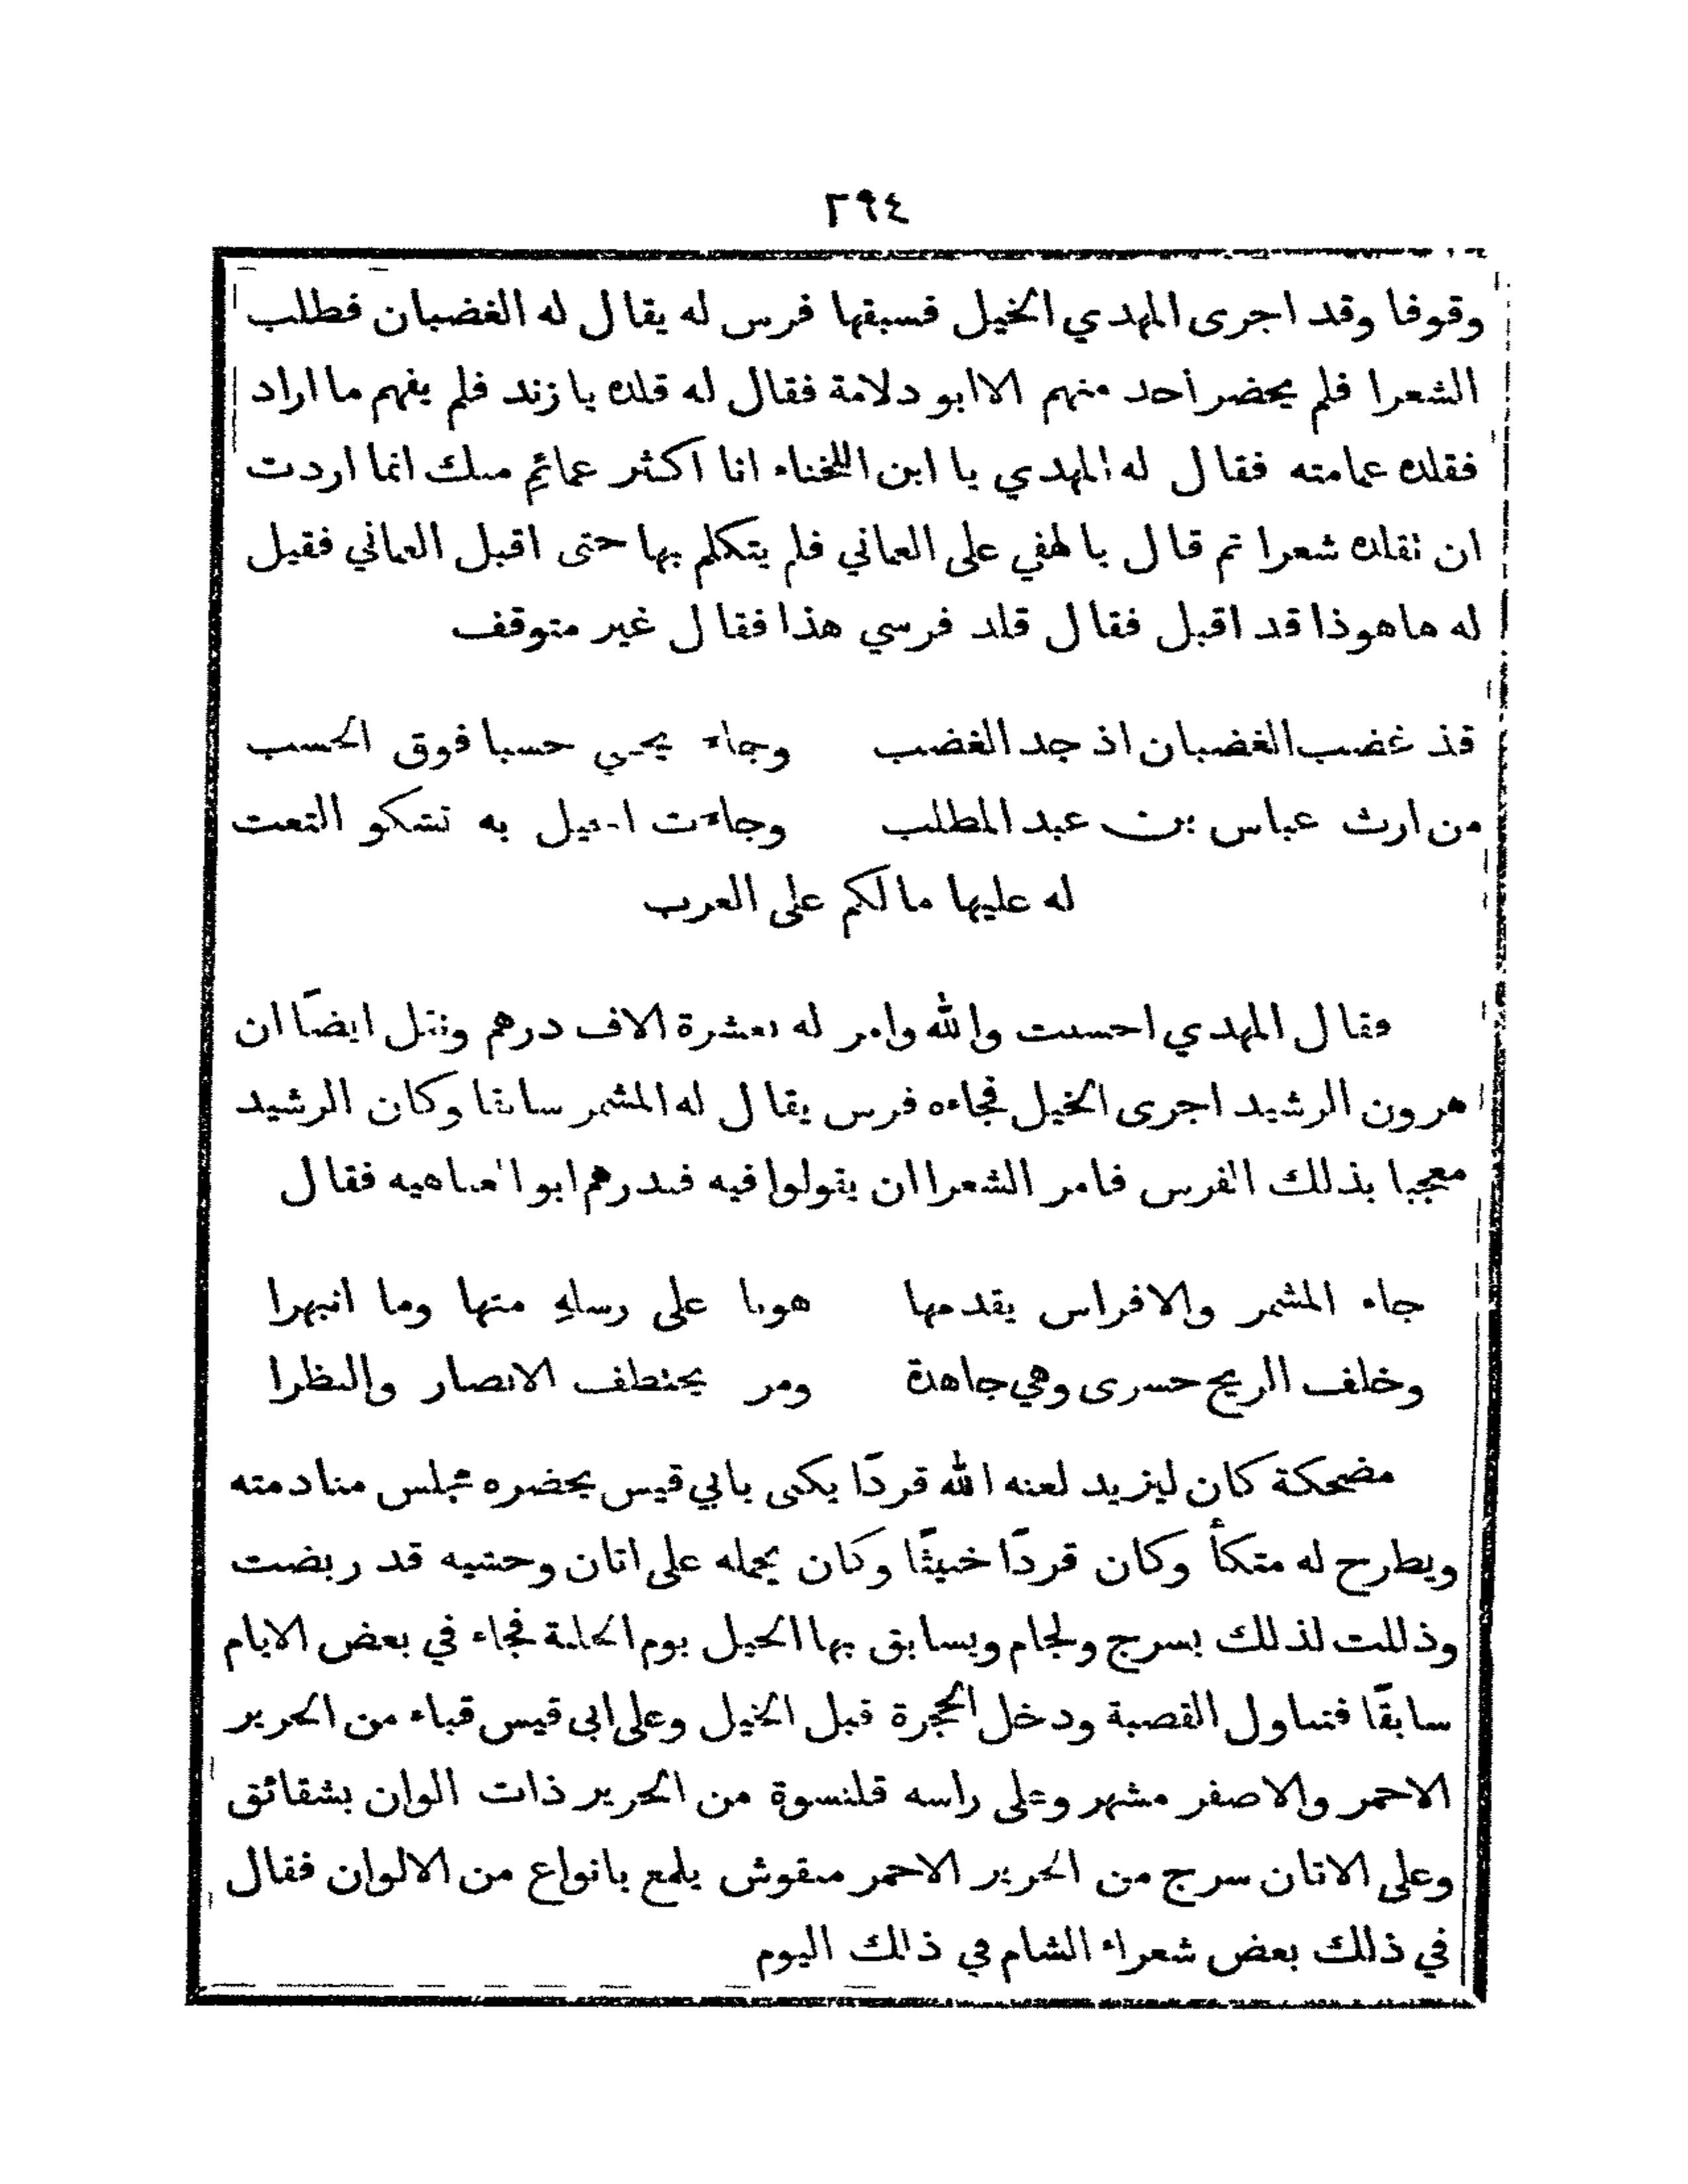 ٢٩٤
وقوفا وقد اجرى المهدي الخيل فسبقها فرس له يقال له الغضبان فطلب
الشعرا فلم يحضر أحد منهم الا ابو دلامة فقال له قلده يا زند فلم يفهم ما اراد
فقلده عمامته فقال له المهدي يا ابن اللخناء انا اكثر عمائم منك انما اردت
ان تقلده شعرا ثم قال يا لهفي على العماني فلم يتكلم بها حتى اقبل العماني فقيل
له هاهوذا قد اقبل فقال قلد فرسي هذا فقال غير متوقف
قد غضب الغضبان اذ جد الغضب وجاء يحمي حسبا فوق الحسب
من ارث عباس بن عبد المطلب وجاءت الخيل به تشكو التعب
له عليها ما لكم على العرب
فقال المهدي احسنت والله وامر له بعشرة الاف درهم ونقل ايضًا ان
هرون الرشيد اجرى الخيل فجاءه فرس يقال له المشمر سابقا وكان الرشيد
معجبا بذلك الفرس فامر الشعرا ان يقولوا فيه فبدرهم ابو العتاهيه فقال
جاء المشمر والافراس يقدمها هونا على رسلهِ منها وما انبهرا
وخلف الريح حسرى وهي جاهدة ومر يختطف الابصار والنظرا
مضحكة كان ليزيد لعنه الله قردًا يكنى بابي قيس يحضره مجلس منادمته
ويطرح له متكأ وكان قردًا خبيثًا وكان يحمله على اتان وحشيه قد ربضت
وذللت لذلك بسرج ولجام ويسابق بها الخيل يوم الحلبة فجاء في بعض الايام
سابقًا فتناول القصبة ودخل الحجرة قبل الخيل وعلى ابي قيس قباء من الحرير
الاحمر والاصفر مشهر وعلى راسه قلنسوة من الحرير ذات الوان بشقائق
وعلى الاتان سرج من الحرير الاحمر منقوش يلمع بانواع من الالوان فقال
في ذلك بعض شعراء الشام في ذلك اليوم